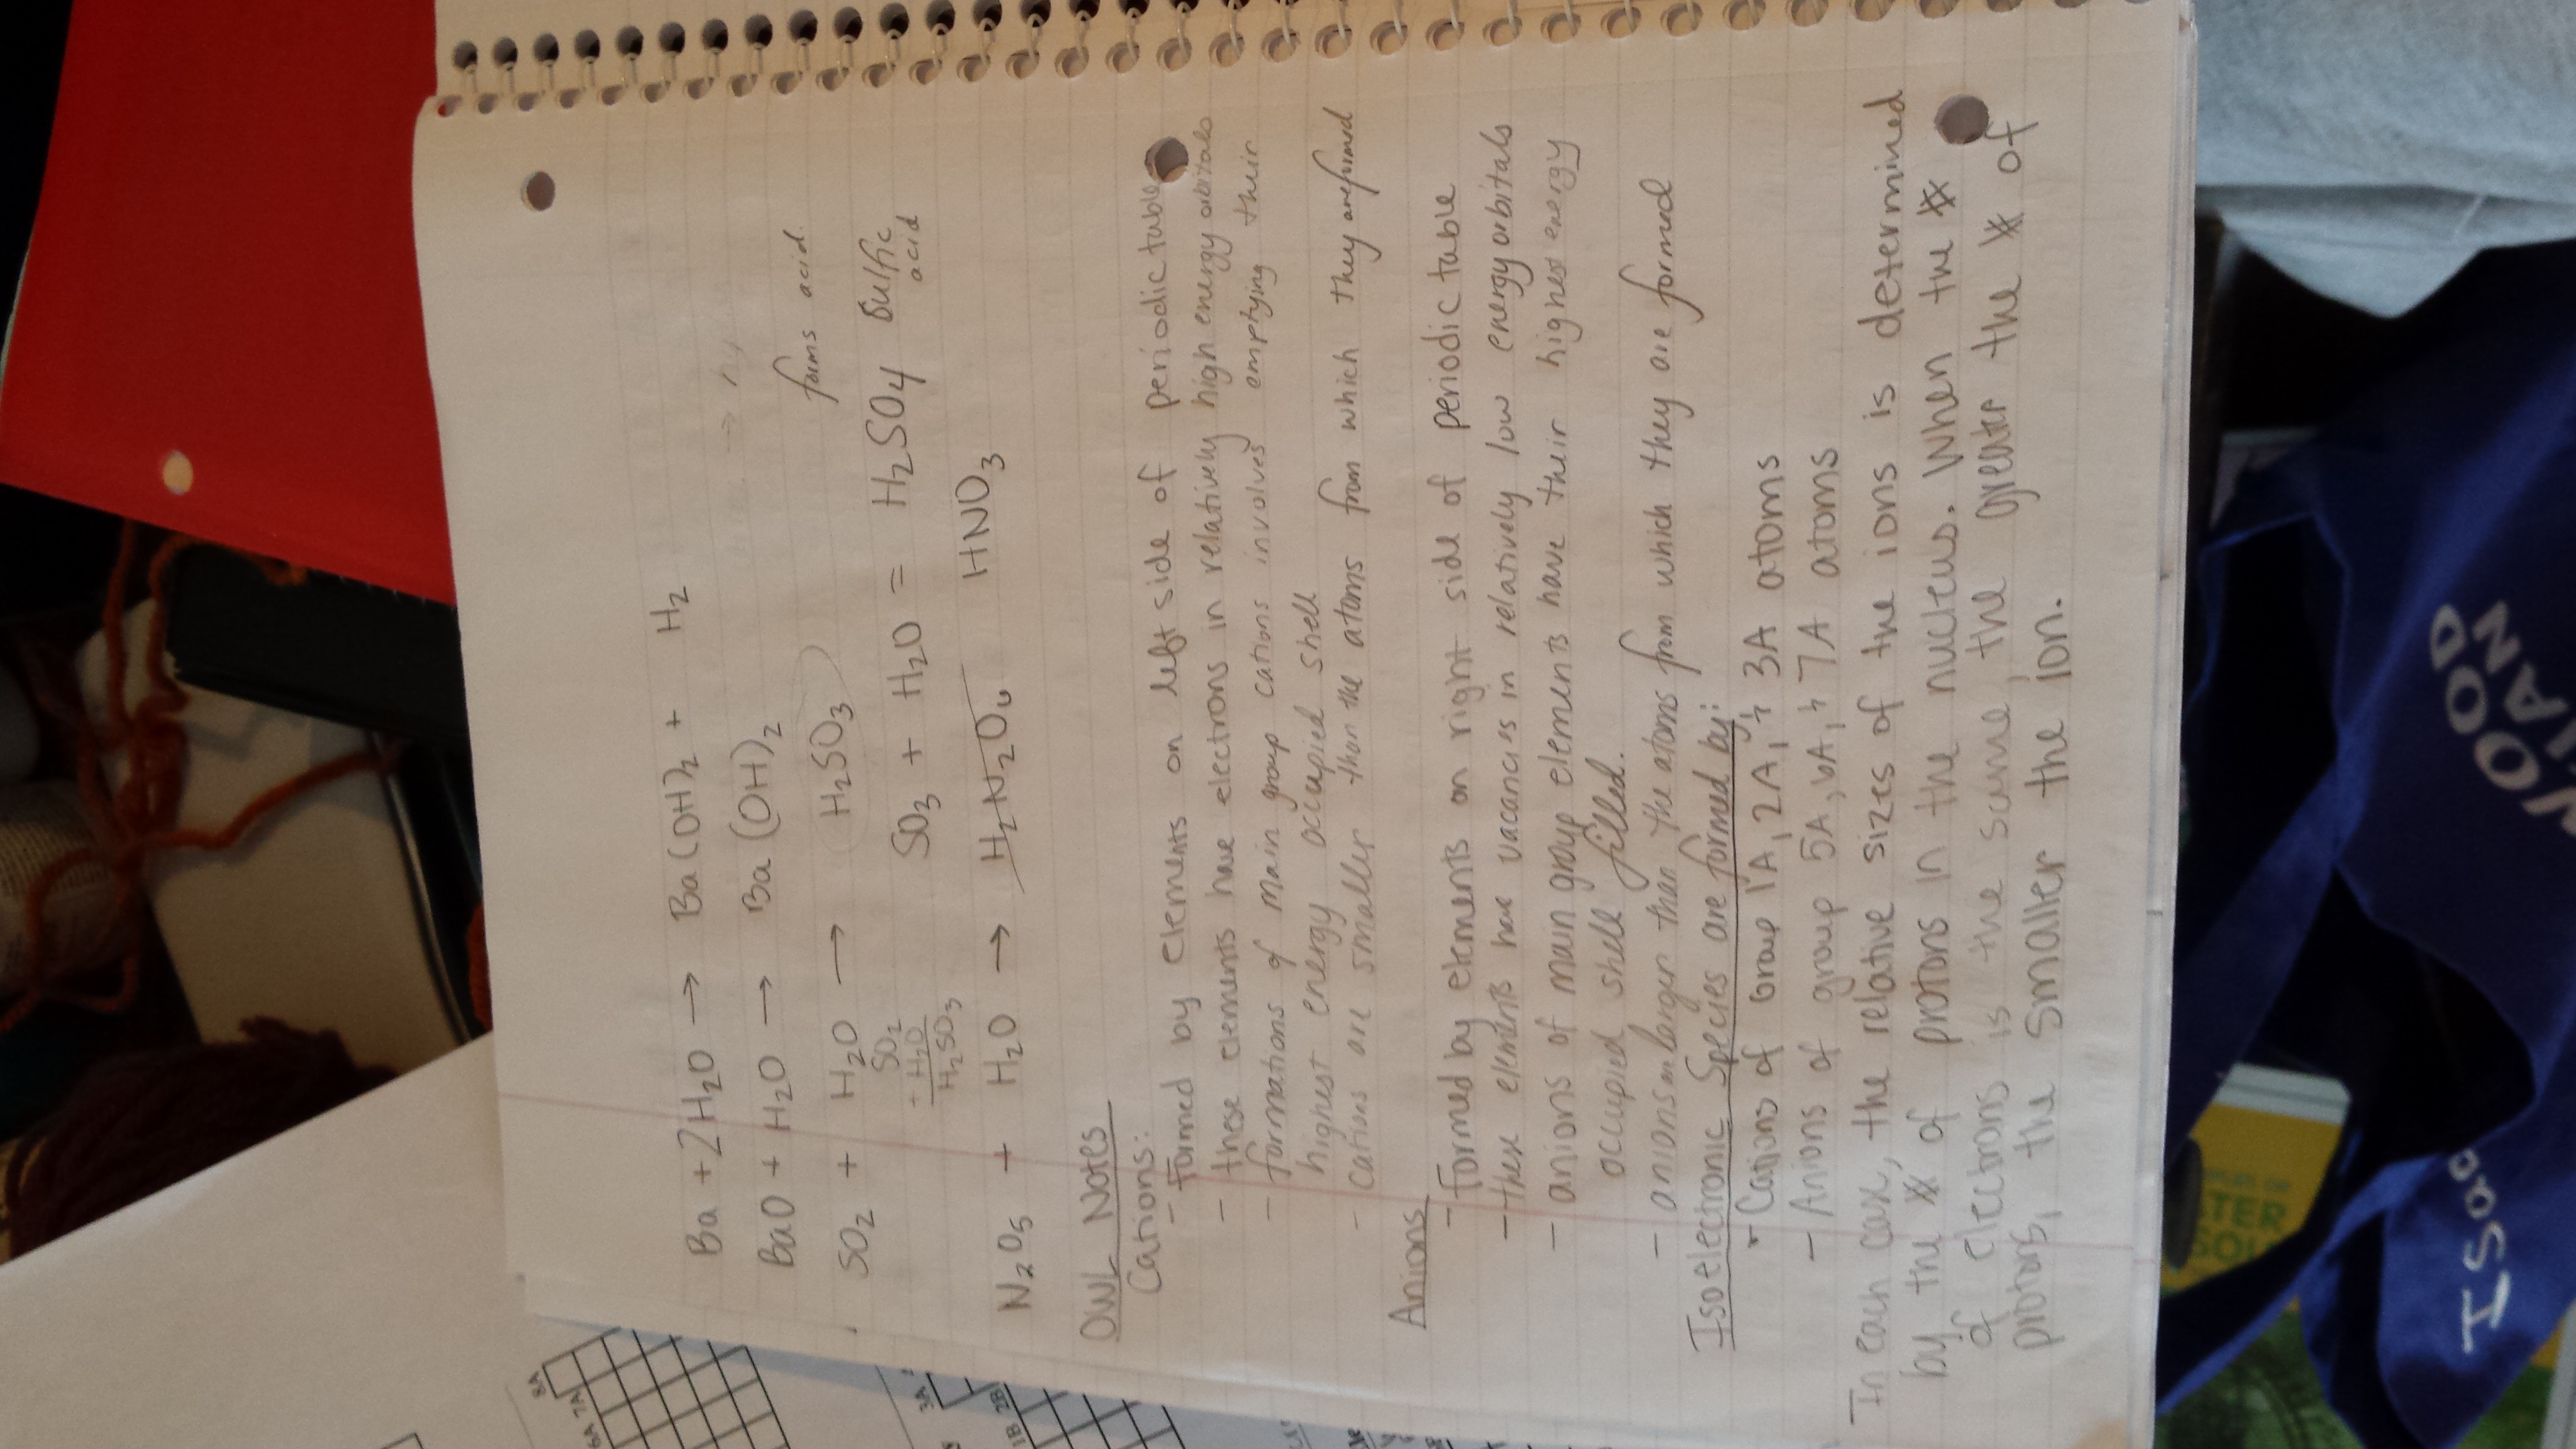 Ba + 2H₂O → Ba(OH)₂ + H₂
BaO + H₂O → Ba(OH)₂
forms acid.
SO₂ + H₂O → H₂SO₃
SO₂
+ H₂O
H₂SO₃
SO₃ + H₂O = H₂SO₄ Sulfic acid
N₂O₅ + H₂O → H₂N₂O₆ HNO₃
OWL Notes
Cations:
- Formed by elements on left side of periodic table
- these elements have electrons in relatively high energy orbitals
- formations of main group cations involves emptying their
highest energy occupied shell
- cations are smaller than the atoms from which they are formed
Anions
- Formed by elements on right side of periodic table
- these elements have vacancies in relatively low energy orbitals
- anions of main group elements have their highest energy
occupied shell filled.
- anions are larger than the atoms from which they are formed
Isoelectronic Species are formed by:
- Cations of Group 1A, 2A, 3A atoms
- Anions of group 5A, 6A, 7A atoms
In each case, the relative sizes of the ions is determined
by the # of protons in the nucleus. When the #
of electrons is the same, the greater the # of
protons, the smaller the ion.
8A
6A 7A
3A
1B 2B
Isaac